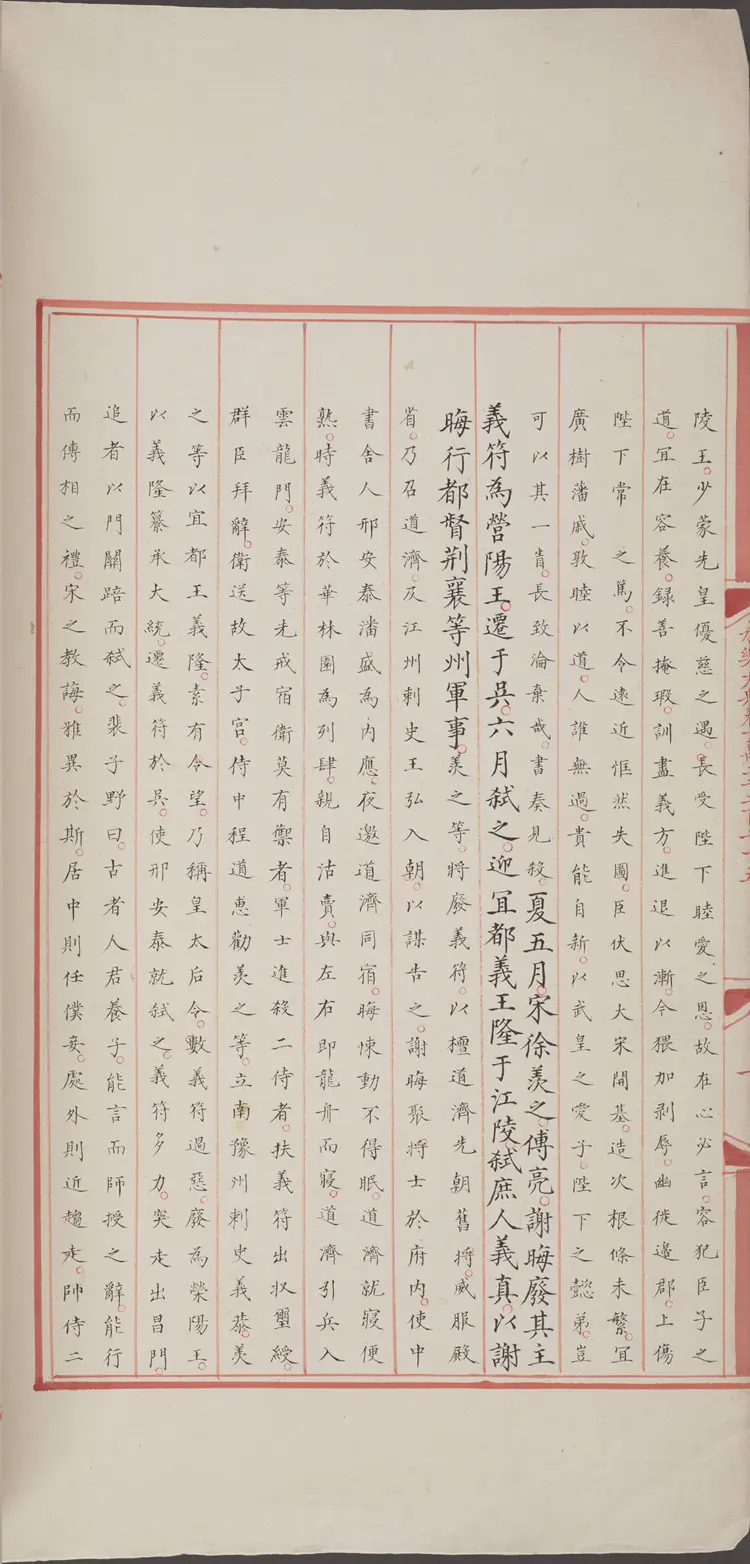 陵王。少蒙先皇優慈之遇。長受陛下睦愛之恩。故在心必言。容犯臣子之
道。宜在容養。録善掩瑕。訓盡義方。進退以漸。今猥加剥辱。幽徙邉郡。上傷
陛下常 之篤。不令逺近恇然失圖。臣伏思大宋開基。造次根條未繁。宜
廣樹藩戚。敦睦以道。人誰無過。貴能自新。以武皇之愛子。陛下之懿弟。豈
可以其一眚。長致淪棄哉。書奏見殺。夏五月。宋徐羡之。傅亮。謝晦廢其主
義符為營陽王。遷于吳。六月弑之。迎宜都義王隆于江陵弑庶人義真。以謝
晦行都督荆襄等州軍事。羡之等。將廢義符。以檀道濟先朝舊將。威服殿
省。乃召道濟。及江州刺史王弘入朝。以謀告之。謝晦聚將士於府内。使中
書舍人邢安泰潘盛為内應。夜邀道濟同宿。晦悚動不得眠。道濟就寝便
熟。時義符於華林園為列肆。親自沽賣。與左右即龍舟而寢。道濟引兵入
雲龍門。安泰等先戒宿衛莫有禦者。軍士進殺二侍者。扶義符出收璽綬。
群臣拜辭。衛送故太子宫。侍中程道惠勸羡之等。立南豫州刺史義恭。羡
之等以宜都王義隆。素有令望。乃稱皇太后令。數義符過惡。廢為榮陽王。
以義隆纂承大統。遷義符於吳。使邢安泰就弑之。義符多力。突走出昌門。
追者以門關踣而弑之。裴子野曰。古者人君養子。能言而師授之辭。能行
而傅相之禮。宋之教誨。雅異於斯。居中則任僕妾。處外則近趨走。帥侍二